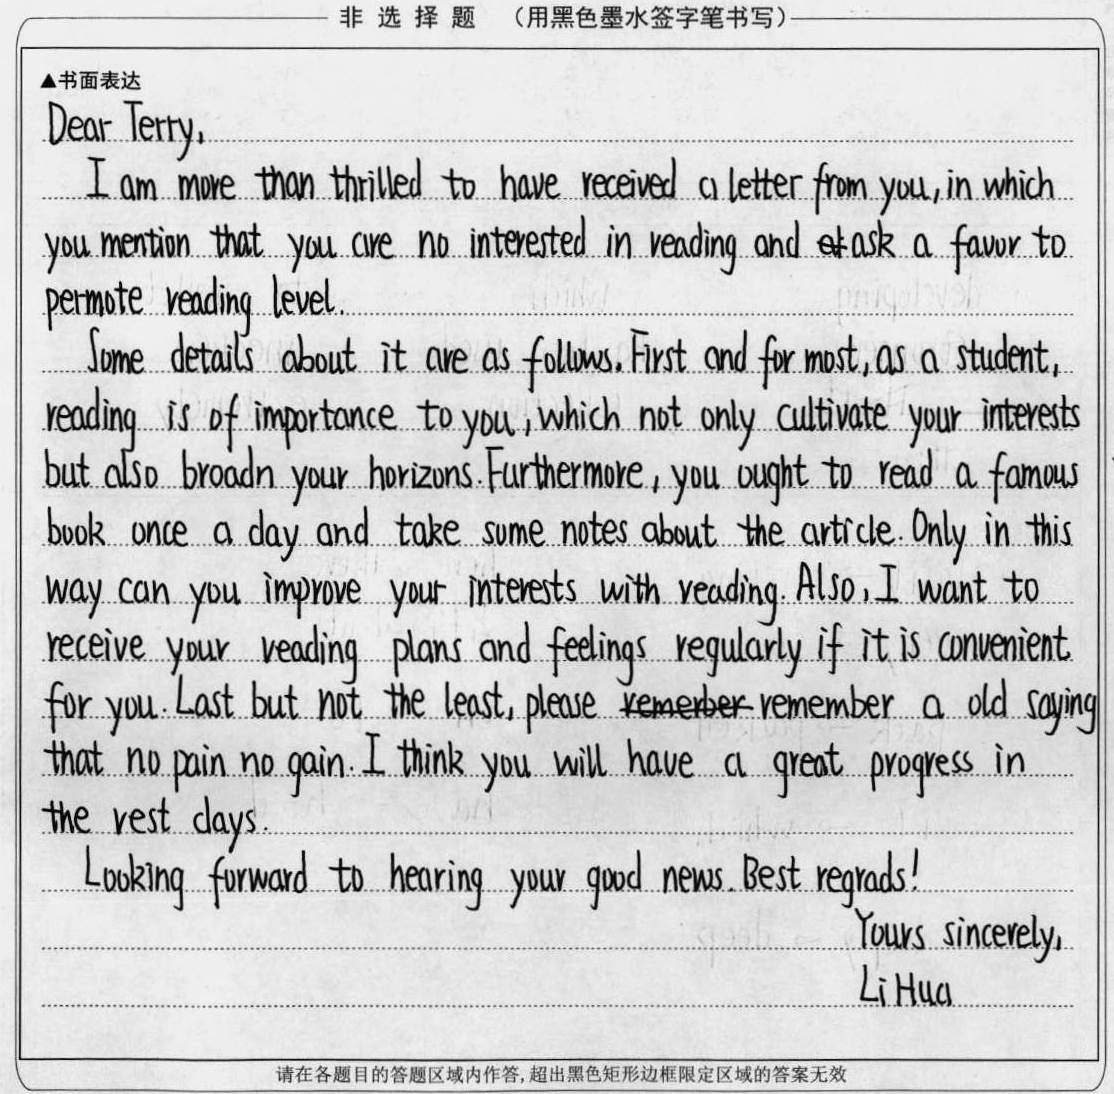 非 选 择 题 （用黑色墨水签字笔书写）
▲书面表达
Dear Terry,
I am more than thrilled to have received a letter from you, in which
you mention that you are no interested in reading and ask a favor to
permote reading level.
Some details about it are as follows. First and for most, as a student,
reading is of importance to you, which not only cultivate your interests
but also broadn your horizons. Furthermore, you ought to read a famous
book once a day and take some notes about the article. Only in this
way can you improve your interests with reading. Also, I want to
receive your reading plans and feelings regularly if it is convenient
for you. Last but not the least, please remerber remember a old saying
that no pain no gain. I think you will have a great progress in
the rest days.
Looking forward to hearing your good news. Best regrads!
Yours sincerely,
Li Hua
请在各题目的答题区域内作答,超出黑色矩形边框限定区域的答案无效